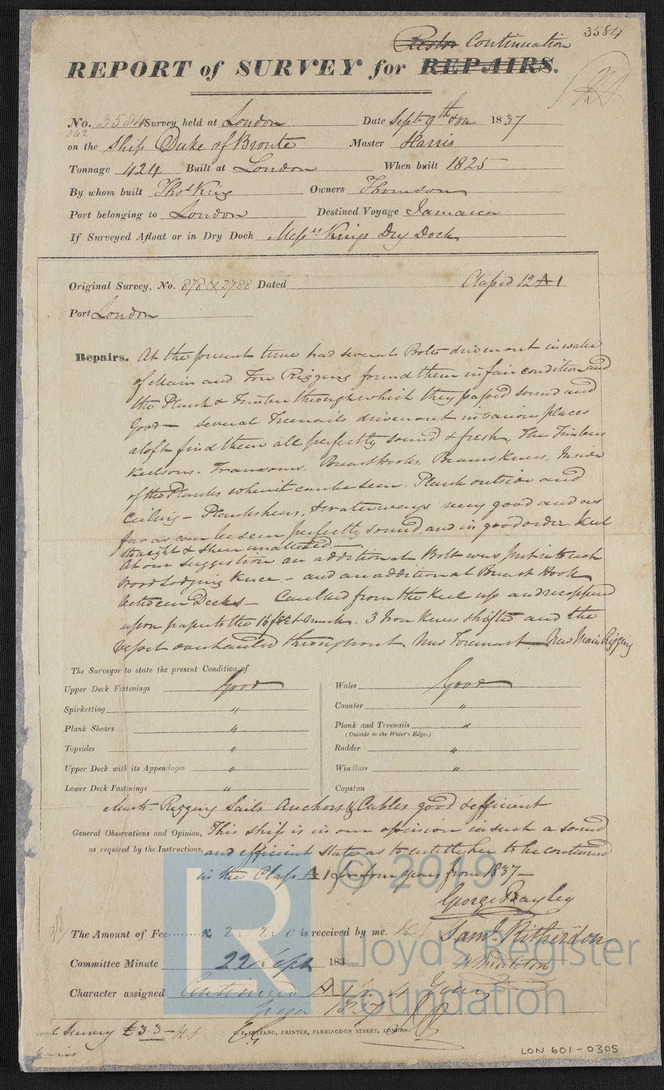 3584
Continuation
REPORT of SURVEY for REPAIRS.
No. 3584 Survey held at London Date Sept 9th 1837
342
on the Ship Duke of Bronte Master Harris
Tonnage 424 Built at London When built 1825
By whom built Thos King Owners Thomson
Port belonging to London Destined Voyage Jamaica
If Surveyed Afloat or in Dry Dock Messrs Kings Dry Dock
Original Survey, No. 878 & 2788 Dated Classed 12 A 1
Port London
Repairs. At the present time had several Bolts driven out in wake
of Main and Fore Rigging found them in fair condition and
the Plank & Timber through which they passed sound and
Good — several Treenails driven out in various places
aloft find them all perfectly sound & fresh, The Timbers
Keelsons. Transoms, Breasthooks, Beams Knees, Inside
of the Planks where it can be seen. Plank outside and
Ceiling — Planksheers, & waterways very good and as
far as can be seen perfectly sound and in good order Keel
straight & Sheer unaltered —
At our suggestion an additional Bolt was put into each
Wood Lodging Knee — and an additional Breast Hook
between Decks — Caulked from the Keel up and recoppered
upon paper to the 16 feet mark. 3 Iron Knees shifted and the
overhauled throughout New Foremast — New Main Rigging
The Surveyor to state the present Condition of
Upper Deck Fastenings Good Wales Good
Spirketting " Counter "
Plank Shears " Plank and Treenails "
(Outside to the Water's Edge.)
Topsides " Rudder "
Upper Deck with its Appendages " Windlass "
Lower Deck Fastenings " Capstan
Masts Rigging Sails Anchors & Cables good & efficient
General Observations and Opinion, This ship is in our opinion in such a sound
as required by the Instructions, and efficient state as to entitle her to be continued
in the Class A 1 for four years from 1837 —
George Bayley
The Amount of Fee £ 2 : 2 : 0 is received by me.
Saml Pitherdon
Committee Minute 22 Sept 183
Character assigned Continued A 1 Years
from 1837
Survey £3 3 —
PRINTER, FARRINGDON STREET, LONDON.
LON 601-0305
© 2019
Lloyd's Register
Foundation